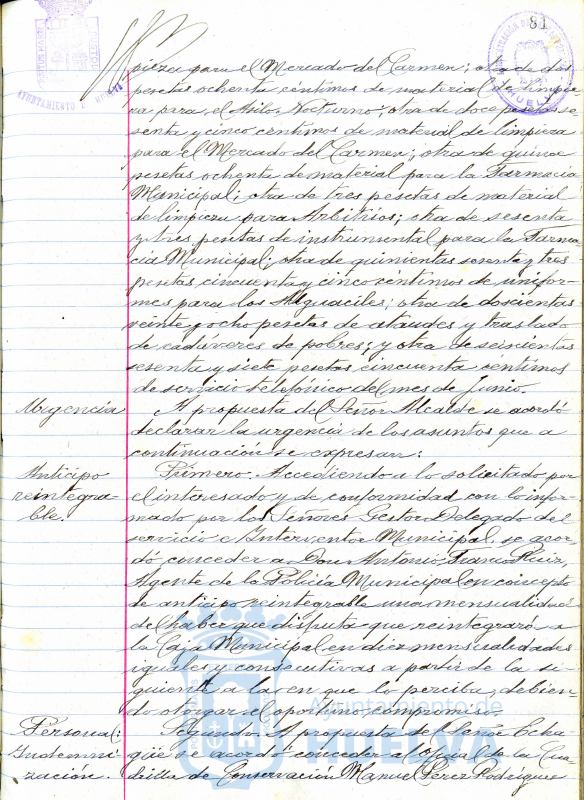 81
AYUNTAMIENTO
pieza para el Mercado del Carmen; otra de dos
pesetas ochenta céntimos de material de limpie
za para el Asilo Nocturno; otra de doce pesetas se
senta y cinco céntimos de material de limpieza
para el Mercado del Carmen; otra de quince
pesetas ochenta de material para la Farmacia
Municipal; otra de tres pesetas de material
de limpieza para Arbitrios; otra de sesenta
y tres pesetas de instrumental para la Farma
cia Municipal; otra de quinientas sesenta y tres
pesetas cincuenta y cinco céntimos de unifor-
mes para los Alguaciles; otra de doscientas
veinte y ocho pesetas de ataudes y traslado
de cadáveres de pobres; y otra de seiscientas
sesenta y siete pesetas cincuenta céntimos
de servicio telefónico del mes de Junio.
Urgencia A propuesta del Señor Alcalde se acordó
declarar la urgencia de los asuntos que a
continuación se expresan:
Anticipo Primero. Accediendo a lo solicitado por
reintegra- el interesado y de conformidad con lo infor-
ble. mado por los Señores Gestor Delegado del
servicio e Interventor Municipal, se acor
dó conceder a Don Antonio Franco Ruiz,
Agente de la Policía Municipal en concepto
de anticipo reintegrable una mensualidad
de haber que disfruta que reintegrará a
la Caja Municipal en diez mensualidades
iguales y consecutivas a partir de la si-
guiente a la en que lo perciba, debien-
do otorgar el oportuno compromiso.
Personal: Segundo. A propuesta del Señor Echa-
Indemni güe se acordó conceder al oficial de la Cua
zación. drilla de Conservación Manuel Pérez Rodríguez
Ayuntamiento de
HUELVA